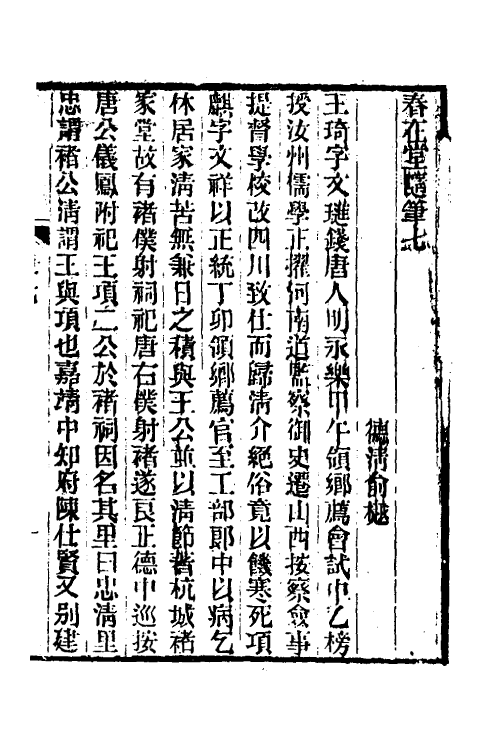 春在堂隨筆七
德清俞樾
王琦字文璡錢唐人明永樂甲午領鄉薦會試中乙榜
授汝州儒學正擢河南道監察御史遷山西按察僉事
提督學校改四川致仕而歸清介絕俗竟以饑寒死項
麒字文祥以正統丁卯領鄉薦官至工部郎中以病乞
休居家清苦無兼日之積與王公並以清節著杭城褚
家堂故有褚僕射祠祀唐右僕射褚遂良正德中巡按
唐公儀鳳附祀王項二公於褚祠因名其里曰忠清里
忠謂褚公清謂王與項也嘉靖中知府陳仕賢又別建